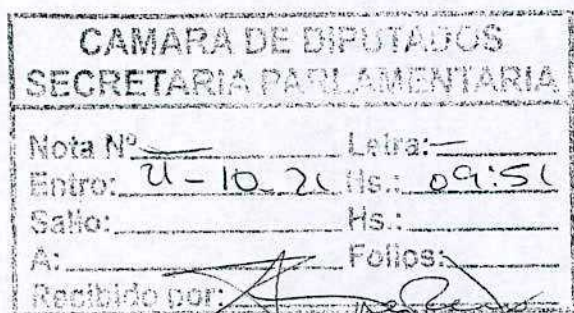 CAMARA DE DIPUTADOS
SECRETARIA PARLAMENTARIA
Nota Nº — Letra: —
Entro: 21-10-21 Hs.: 09:51
Salio: Hs.:
A: Folios:
Recibido por: